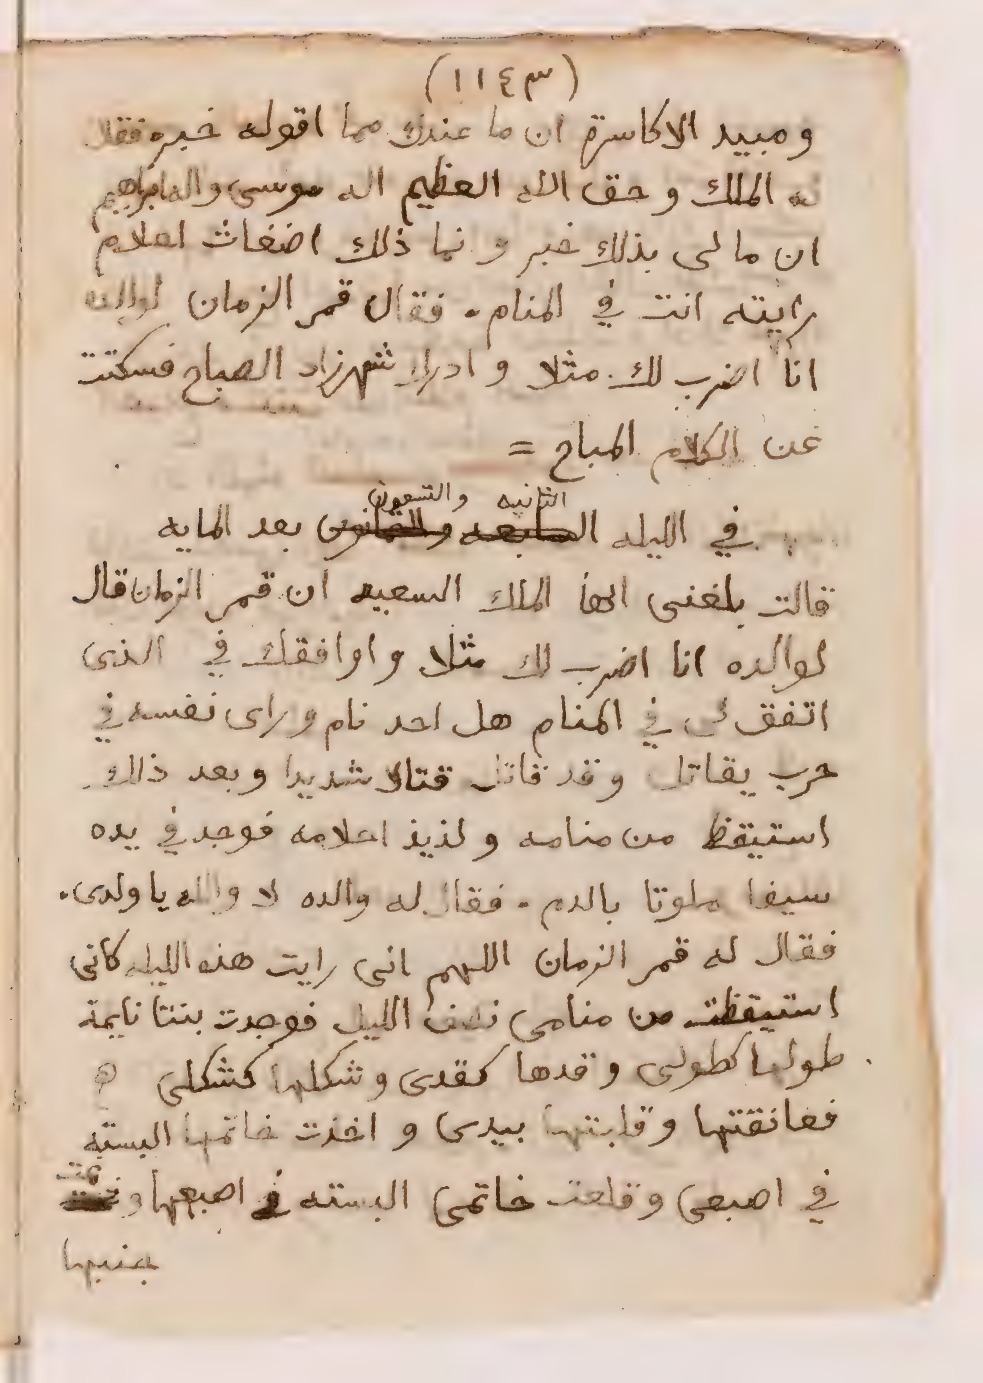 (١١٤٣)
ومبيد الاكاسرة ان ما عندك مما اقوله خبره فقال
له الملك وحق الله العظيم اله موسى واله ابراهيم
ان ما لى بذلك خبر و نما ذلك اضغاث احلام
رايته انت في المنام . فقال قمر الزمان لوالده
انا اضرب لك مثلا وادرك شهرزاد الصباح فسكتت
عن الكلام المباح =
الثانيه والتسعون
في الليله السابعه والثمانون بعد المايه
قالت بلغنى ايها الملك السعيد ان قمر الزمان قال
لوالده انا اضرب لك مثلا واوافقك في الذى
اتفق لى في المنام هل احد نام وراى نفسه في
حرب يقاتل وقد قاتل قتالا شديدا وبعد ذلك
استيقظ من منامه ولذيذ احلامه فوجد في يده
سيفا ملوتا بالدم . فقال له والده لا والله يا ولدى .
فقال له قمر الزمان اللهم انى رايت هذه الليله كانى
استيقظت من منامى نصف الليل فوجدت بنتا نايمة
طولها كطولى وقدها كقدى وشكلها كشكلى ه
فعانقتها وقلبتها بيدى واخذت خاتمها البسته
في اصبعى وقلعت خاتمى البسته في اصبعها ونمت
بجنبها